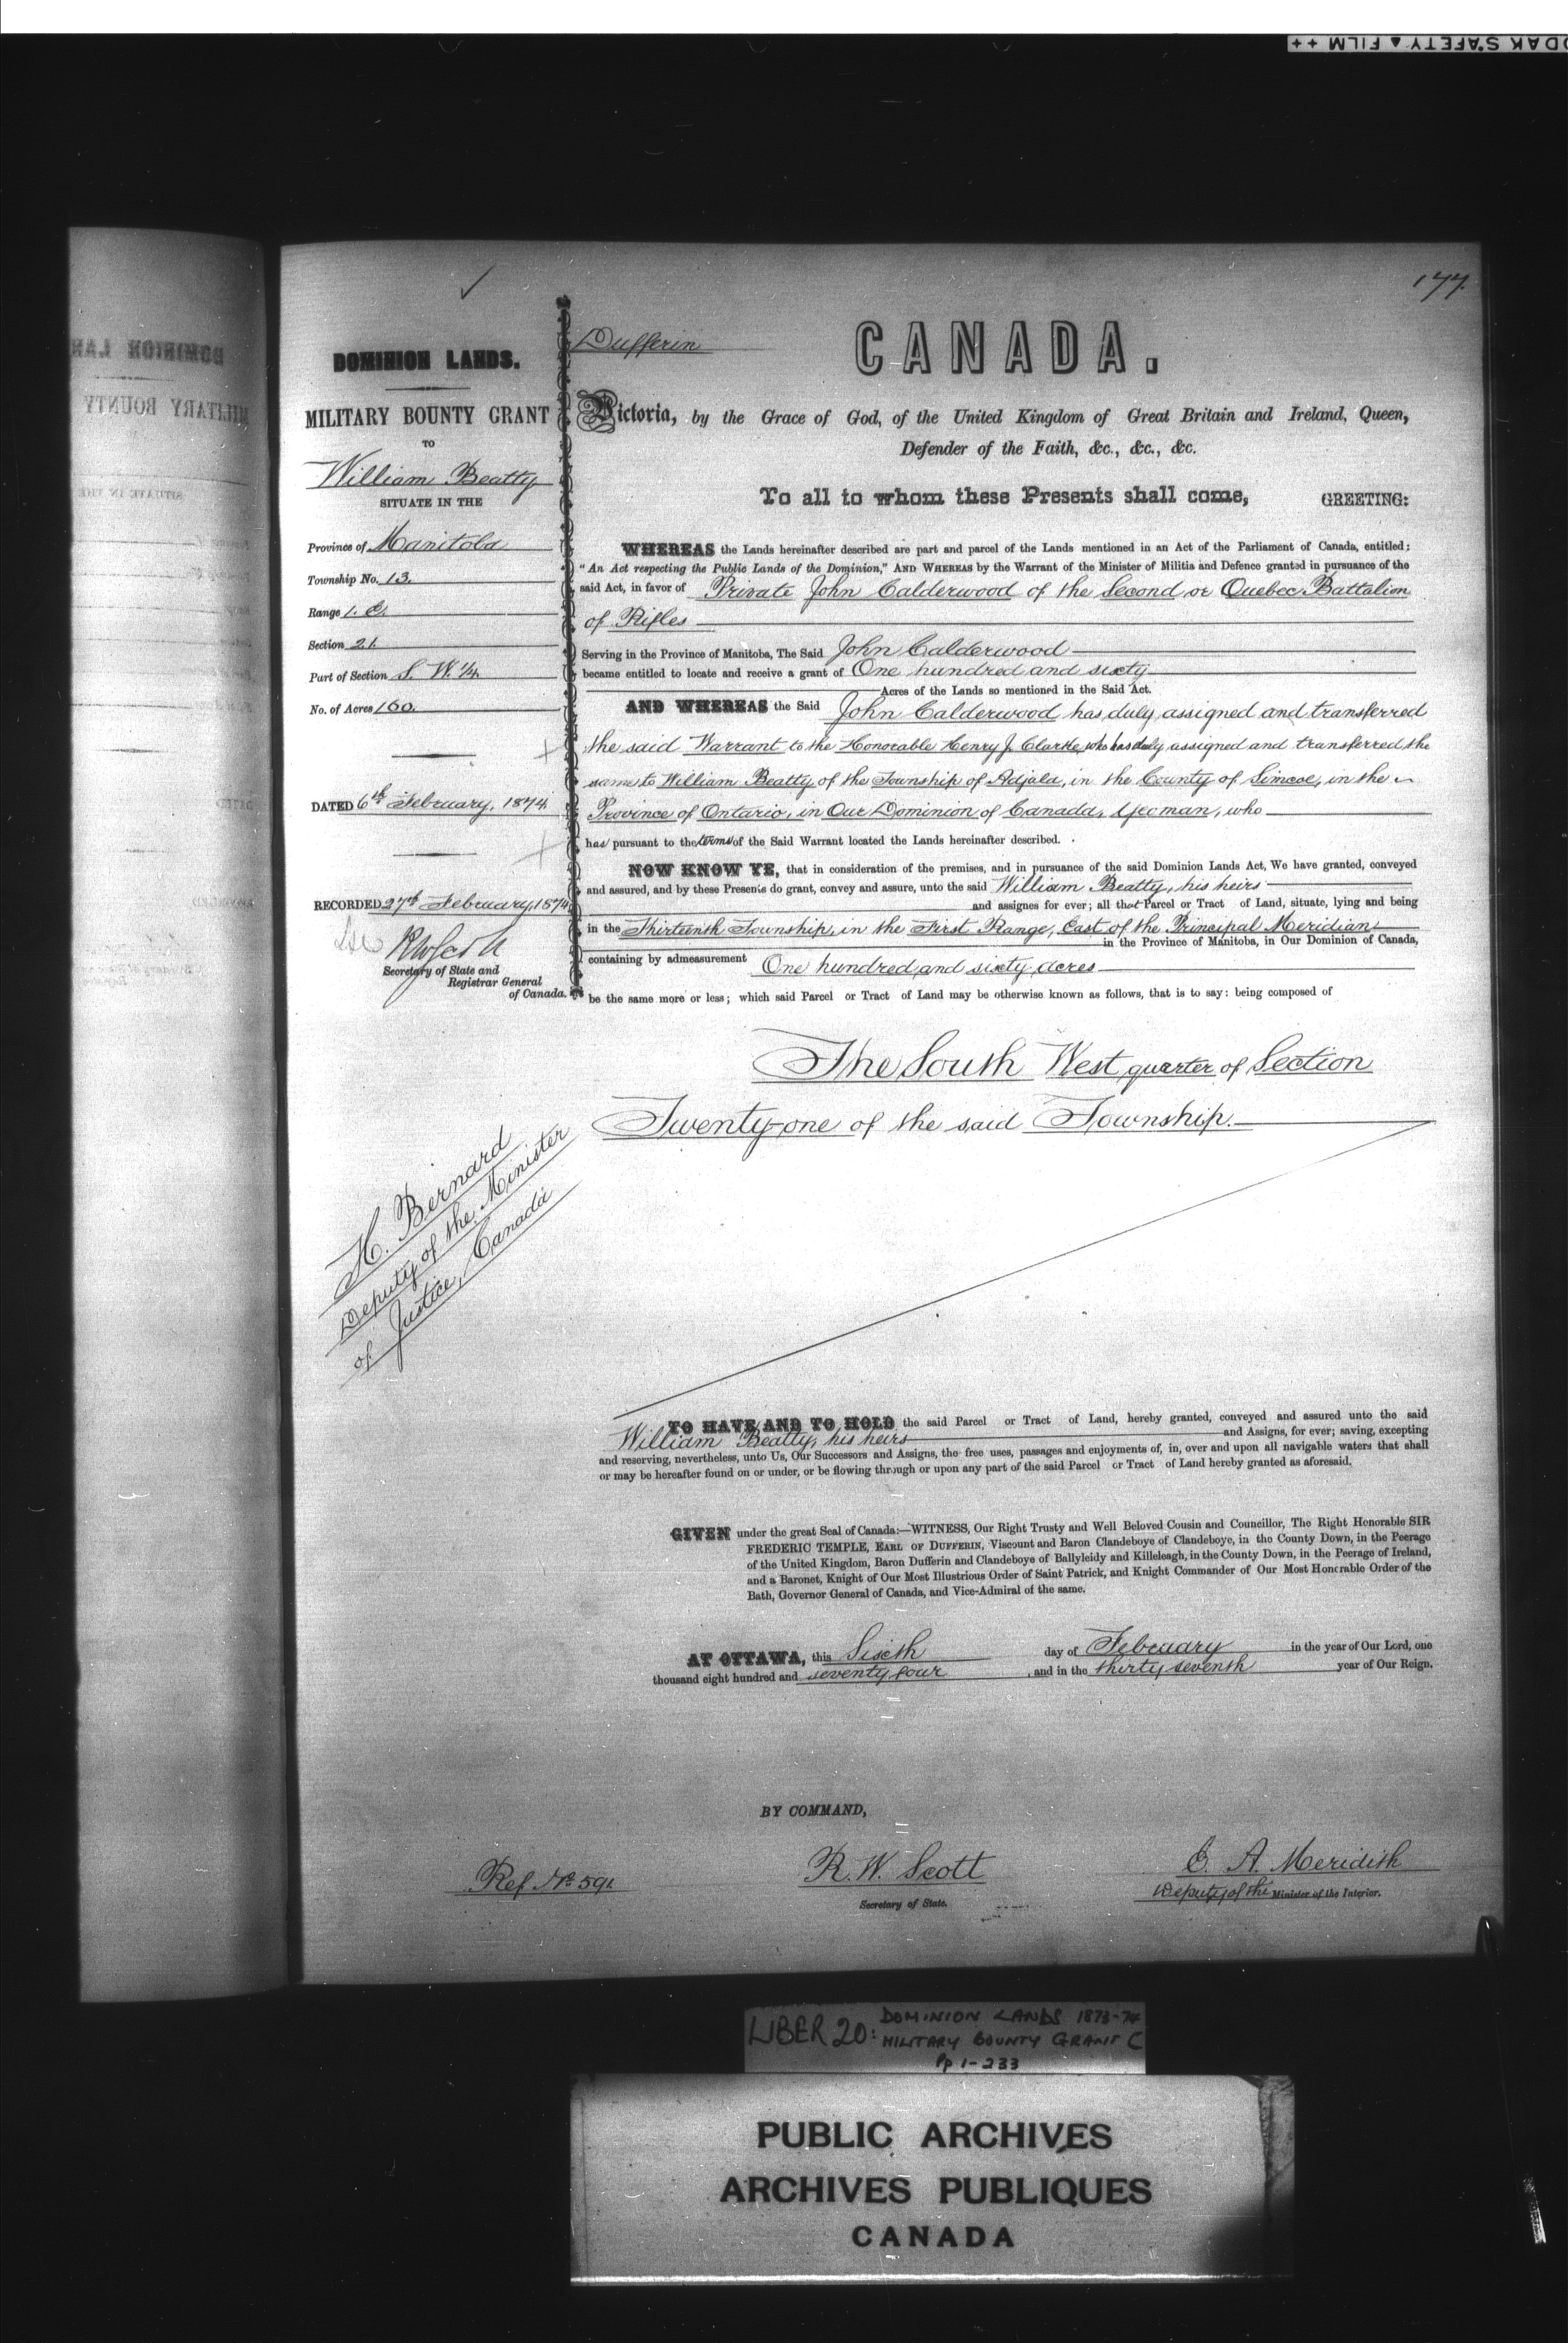 KODAK SAFETY ▲ FILM ++
177
DOMINION LANDS.
MILITARY BOUNTY GRANT
TO
William Beatty
SITUATE IN THE
Province of Manitoba
Township No. 13.
Range 1. E.
Section 21.
Part of Section S. W. 1/4
No. of Acres 160.
DATED 6th February, 1874
RECORDED 27th February, 1874
RWScott
Secretary of State and
Registrar General
of Canada.
H. Bernard
Deputy of the Minister
of Justice, Canada
Dufferin
CANADA.
Victoria, by the Grace of God, of the United Kingdom of Great Britain and Ireland, Queen,
Defender of the Faith, &c., &c., &c.
To all to whom these Presents shall come, GREETING:
WHEREAS the Lands hereinafter described are part and parcel of the Lands mentioned in an Act of the Parliament of Canada, entitled:
"An Act respecting the Public Lands of the Dominion," AND WHEREAS by the Warrant of the Minister of Militia and Defence granted in pursuance of the
said Act, in favor of Private John Calderwood of the Second or Quebec Battalion
of Rifles
Serving in the Province of Manitoba, The Said John Calderwood
became entitled to locate and receive a grant of One hundred and sixty
Acres of the Lands so mentioned in the Said Act.
AND WHEREAS the Said John Calderwood has duly assigned and transferred
the said Warrant to the Honorable Henry J. Clarke, who has duly assigned and transferred the
same to William Beatty of the Township of Adjala, in the County of Simcoe, in the
Province of Ontario, in Our Dominion of Canada, Yeoman, who
has pursuant to the terms of the Said Warrant located the Lands hereinafter described.
NOW KNOW YE, that in consideration of the premises, and in pursuance of the said Dominion Lands Act, We have granted, conveyed
and assured, and by these Presents do grant, convey and assure, unto the said William Beatty, his heirs
and assignes for ever; all that Parcel or Tract of Land, situate, lying and being
in the Thirteenth Township, in the First Range, East of the Principal Meridian,
in the Province of Manitoba, in Our Dominion of Canada,
containing by admeasurement One hundred and sixty acres
be the same more or less; which said Parcel or Tract of Land may be otherwise known as follows, that is to say: being composed of
The South West quarter of Section
Twenty-one of the said Township.
TO HAVE AND TO HOLD the said Parcel or Tract of Land, hereby granted, conveyed and assured unto the said
William Beatty, his heirs and Assigns, for ever; saving, excepting
and reserving, nevertheless, unto Us, Our Successors and Assigns, the free uses, passages and enjoyments of, in, over and upon all navigable waters that shall
or may be hereafter found on or under, or be flowing through or upon any part of the said Parcel or Tract of Land hereby granted as aforesaid.
GIVEN under the great Seal of Canada:—WITNESS, Our Right Trusty and Well Beloved Cousin and Councillor, The Right Honorable SIR
FREDERIC TEMPLE, EARL OF DUFFERIN, Viscount and Baron Clandeboye of Clandeboye, in the County Down, in the Peerage
of the United Kingdom, Baron Dufferin and Clandeboye of Ballyleidy and Killeleagh, in the County Down, in the Peerage of Ireland,
and a Baronet, Knight of Our Most Illustrious Order of Saint Patrick, and Knight Commander of Our Most Honorable Order of the
Bath, Governor General of Canada, and Vice-Admiral of the same.
AT OTTAWA, this Sixth day of February in the year of Our Lord, one
thousand eight hundred and seventy four, and in the thirty seventh year of Our Reign.
BY COMMAND,
Ref. No 591.
R. W. Scott
Secretary of State.
E. A. Meredith
Deputy of the Minister of the Interior.
LIBER 20: DOMINION LANDS 1873-74
MILITARY BOUNTY GRANT C
Pp 1-233
PUBLIC ARCHIVES
ARCHIVES PUBLIQUES
CANADA